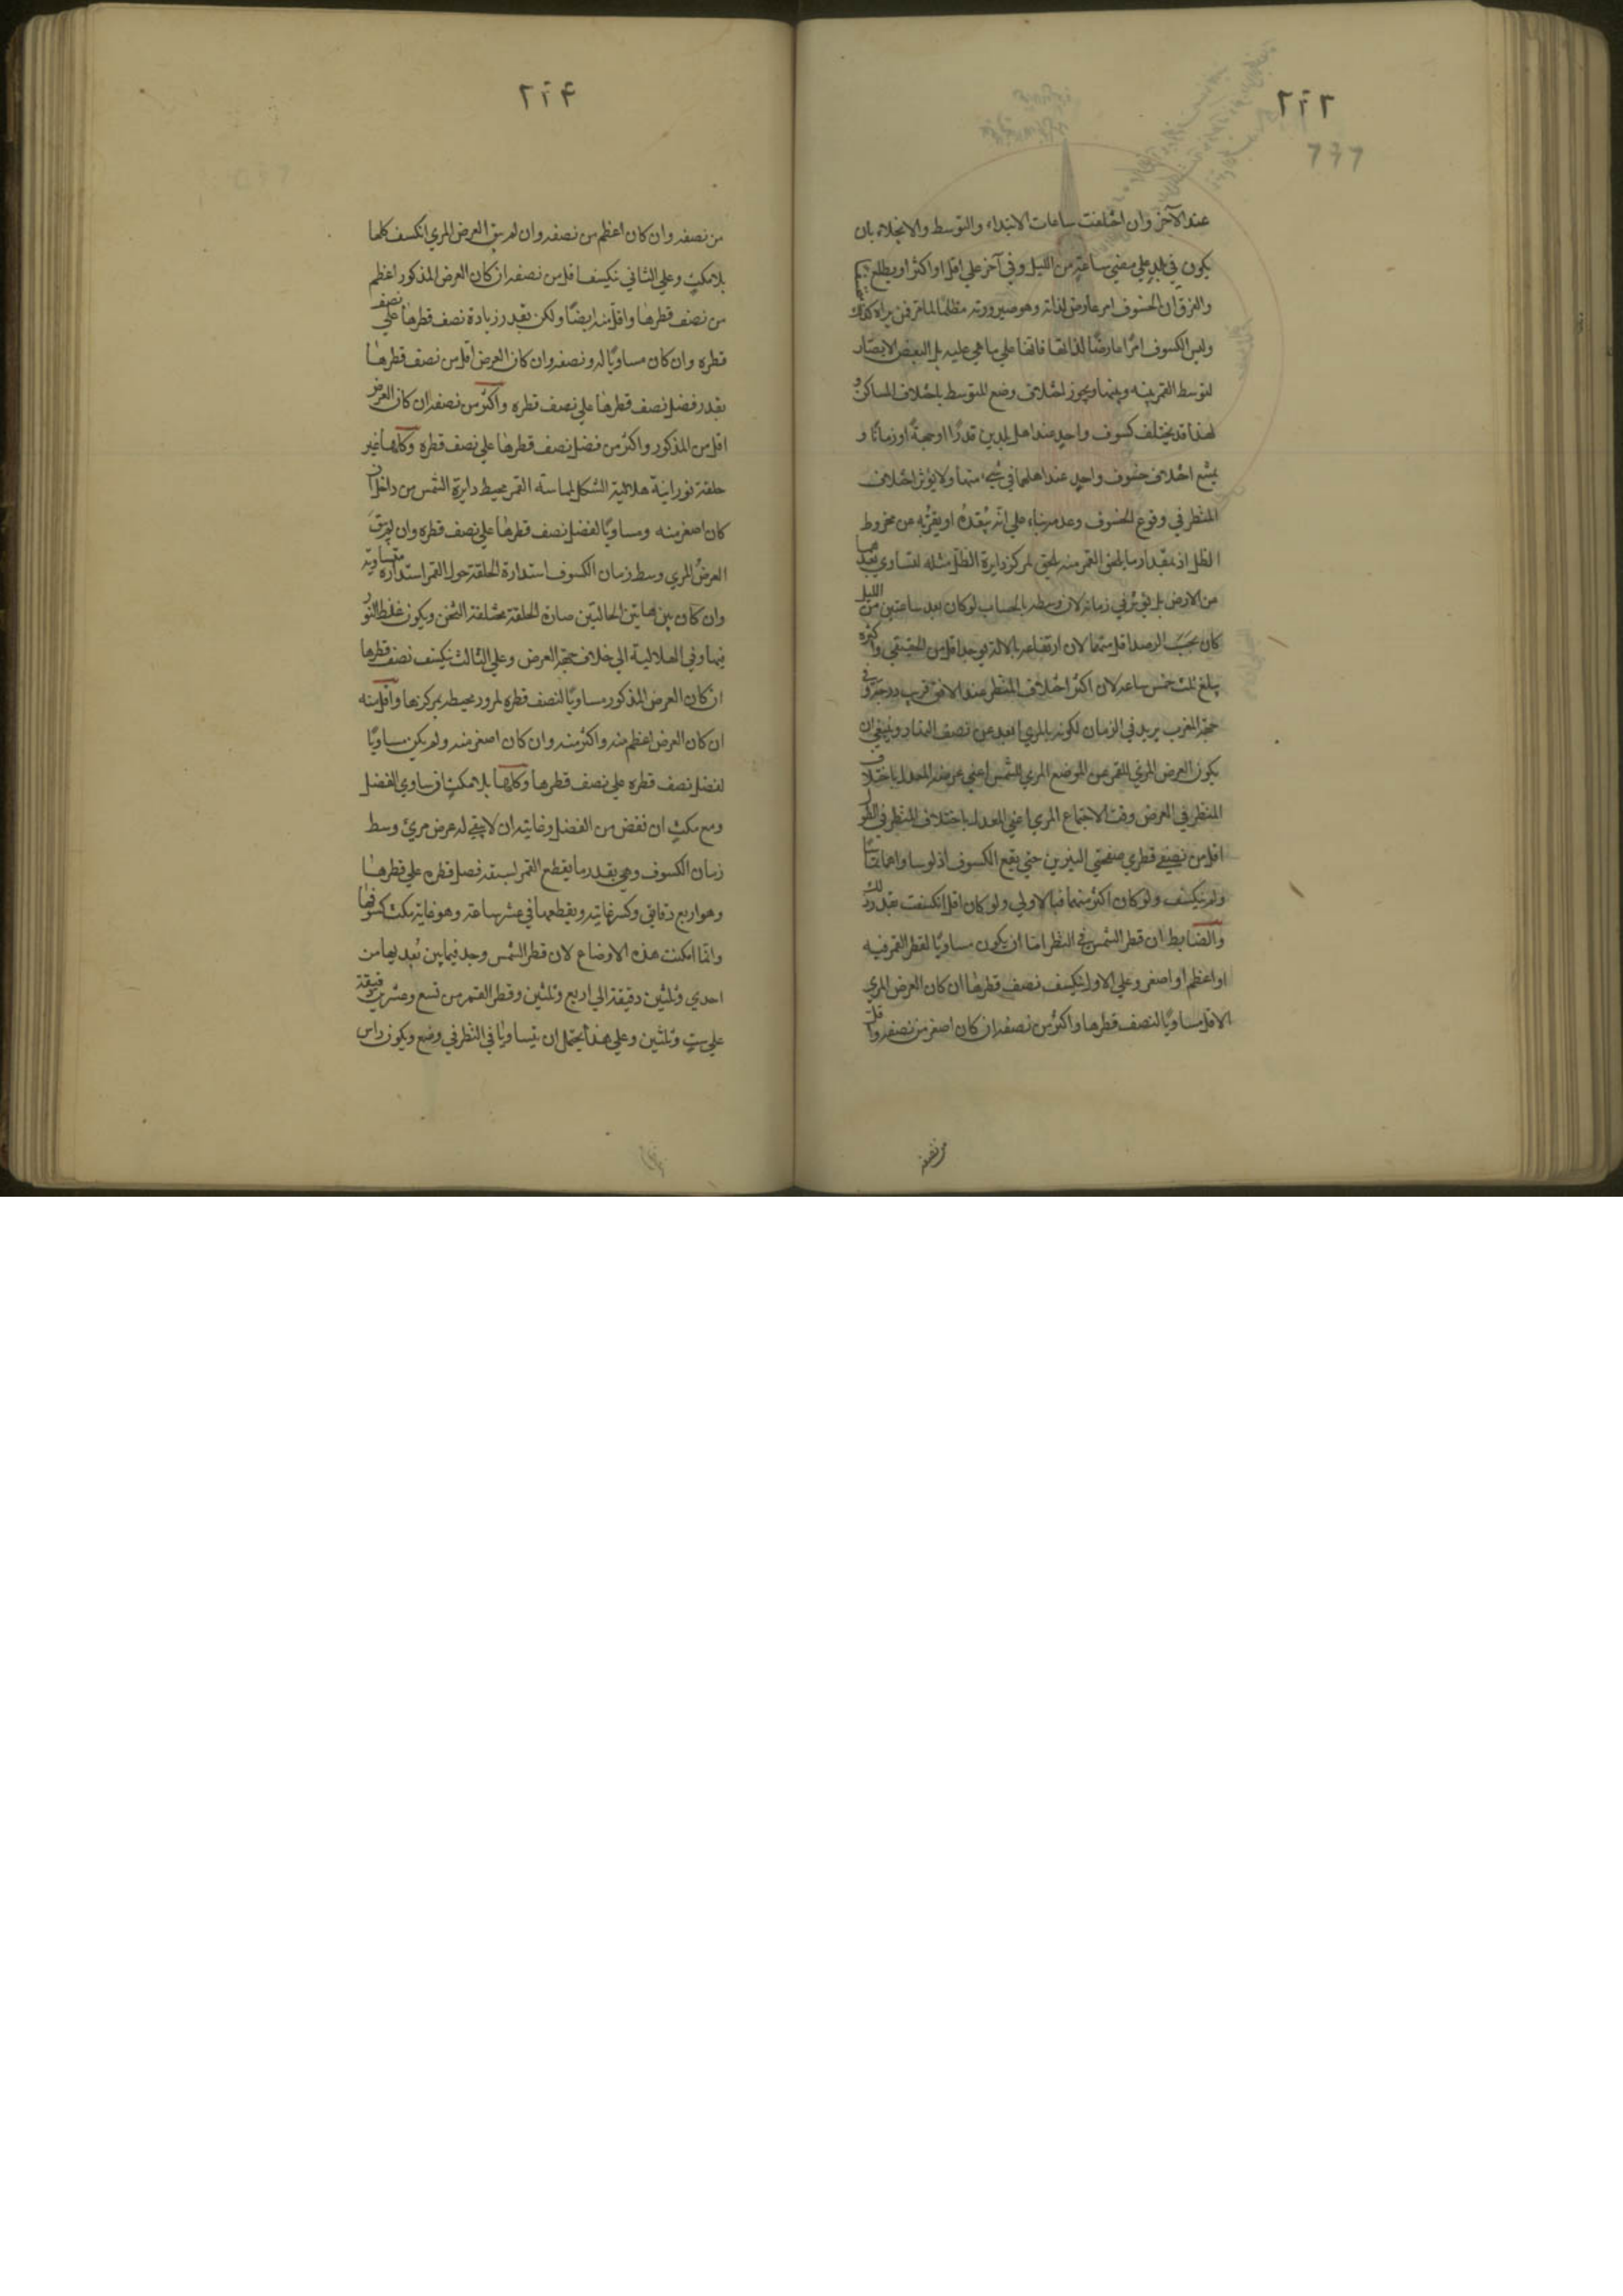 ٢٦٣
عند الآخر وان اختلفت ساعات الابتداء والتوسط والانجلاء بان
يكون في بلد علي مضي ساعة من الليل وفي آخر علي اقل او اكثر او يطلع
والفرق ان الخسوف امر عارض لذاته وهو صيرورته مظلما لما مر فمن يراه كذلك
وليس الكسوف امرًا عارضًا لذاتها فانها علي ما هي عليه بل البعض الابصار
لتوسط القمر بينه وبينها ويجوز اختلاف وضع المتوسط باختلاف المساكن و
لهذا قد يختلف كسوف واحد عند اهل بلدين قدرًا او جهةً او زمانًا و
يمتنع اختلاف خسوف واحد عند اهلهما في شيء منها ولا يؤثر اختلاف
المنظر في وقوع الخسوف وعدمه بناء علي انه يبعده او يقربه عن مخروط
الظل اذ بمقدار ما يلحق القمر منه يلحق لمركز دايرة الظل مثله لتساوي بعدهما
من الارض بل يؤثر في زمانه لان وسطه بالحساب لو كان بعد ساعتين من الليل
كان بحسب الرصد اقل منهما لان ارتفاعه بالالة يوجد اقل من الحقيقي واكثره
يبلغ ثلث خمس ساعه لان اكثر اختلاف المنظر عند الافق قريب درجة وفي
جهة المغرب يزيد في الزمان لكونه بالمري ابعد عن نصف النهار وينبغي ان
يكون العرض المري للقمر عن الموضع المري للشمس اعني عرضه المعدل باختلاف
المنظر في العرض وقت الاجتماع المري اعني المعدل باختلاف المنظر في الطول
اقل من نصفي قطري صفحتي النيرين حتي يقع الكسوف اذ لو ساواهما تماسا
ولم ينكسف ولو كان اكثر منهما فبالاولي ولو كان اقل انكسفت بقدر ذلك
والضابط ان قطر الشمس في النظر اما ان يكون مساويًا لقطر القمر فيه
او اعظم او اصغر وعلي الاول ينكسف نصف قطرها ان كان العرض المري
الاقل مساويًا لنصف قطرها واكثر من نصفه ان كان اصغر من نصفه واقل
من نصفه
٢٦٤
من نصفه وان كان اعظم من نصفه وان لم يبق العرض المري انكسف كلها
بلا مكث وعلي الثاني ينكسف اقل من نصفه ان كان العرض المذكور اعظم
من نصف قطرها واقل منه ايضًا ولكن بقدر زيادة نصف قطرها علي نصف
قطره وان كان مساويًا له ونصفه وان كان العرض اقل من نصف قطرها
بقدر فضل نصف قطرها علي نصف قطره واكثر من نصفه ان كان العرض
اقل من المذكور واكثر من فضل نصف قطرها علي نصف قطره وكلها غير
حلقة نورانية هلالية الشكل لمماسة القمر محيط دايرة الشمس من داخل ان
كان اصغر منه ومساويًا لفضل نصف قطرها علي نصف قطره وان لم يبق
العرض المري وسط زمان الكسوف استدارة الحلقة حول القمر استدارة متساوية
وان كان بين هاتين الحالتين صارت الحلقة مختلفة الثخن ويكون غلظ النور
فيها وفي الهلالية الي خلاف جهة العرض وعلي الثالث ينكسف نصف قطرها
ان كان العرض المذكور مساويًا لنصف قطره لمرور محيطه بمركزها واقل منه
ان كان العرض اعظم منه واكثر منه وان كان اصغر منه ولم يكن مساويًا
لفضل نصف قطره علي نصف قطرها وكلها بلا مكث ان ساوي الفضل
ومع مكث ان نقص من الفضل وغايته ان لا يبقي له عرض مري وسط
زمان الكسوف وهي بقدر ما يقطع القمر لسبقه فضل قطره علي قطرها
وهو اربع دقايق وكسر غايته ويقطعها في عشر ساعة وهو غاية مكث كسوفها
وانما امكنت هذه الاوضاع لان قطر الشمس وجد فيما بين بعديها من
احدي وثلثين دقيقة الي اربع وثلثين وقطر القمر من تسع وعشرين دقيقة
علي ست وثلثين وعلي هذا يحتمل ان يتساويا في النظر في وضع ويكون راس